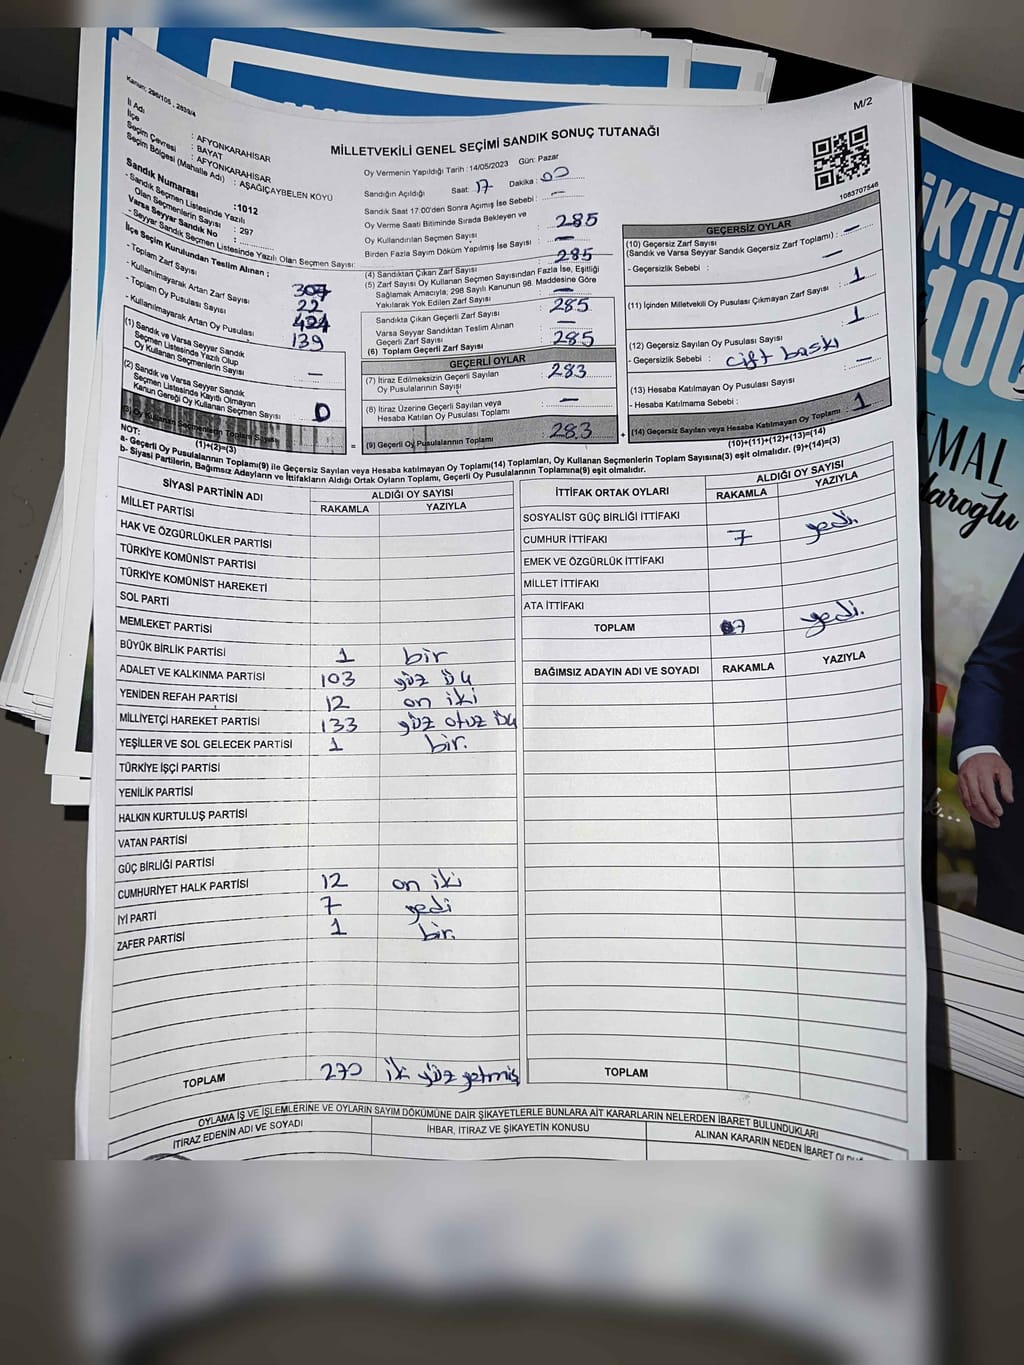 Kanun: 298/105 , 2839/4
M/2
MİLLETVEKİLİ GENEL SEÇİMİ SANDIK SONUÇ TUTANAĞI
İl Adı : AFYONKARAHİSAR
İlçe : BAYAT
Seçim Çevresi : AFYONKARAHİSAR
Seçim Bölgesi (Mahalle Adı) : AŞAĞIÇAYBELEN KÖYÜ
Sandık Numarası :1012
- Sandık Seçmen Listesinde Yazılı
Olan Seçmenlerin Sayısı : 297
Varsa Seyyar Sandık No :
- Seyyar Sandık Seçmen Listesinde Yazılı Olan Seçmen Sayısı:
İlçe Seçim Kurulundan Teslim Alınan ;
- Toplam Zarf Sayısı 307
- Kullanılmayarak Artan Zarf Sayısı 22
- Toplam Oy Pusulası Sayısı 424
- Kullanılmayarak Artan Oy Pusulası 139
(1) Sandık ve Varsa Seyyar Sandık
Seçmen Listesinde Yazılı Olup
Oy Kullanan Seçmenlerin Sayısı : —
(2) Sandık ve Varsa Seyyar Sandık
Seçmen Listesinde Kayıtlı Olmayan
Kanun Gereği Oy Kullanan Seçmen Sayısı : 0
(3) Oy Kullanan Seçmenlerin Toplam Sayısı
(1)+(2)=(3)
Oy Vermenin Yapıldığı Tarih : 14/05/2023 Gün: Pazar
Sandığın Açıldığı Saat: 17 Dakika : 00
Sandık Saat 17:00'den Sonra Açılmış İse Sebebi : —
Oy Verme Saati Bitiminde Sırada Bekleyen ve
Oy Kullandırılan Seçmen Sayısı : 285
Birden Fazla Sayım Döküm Yapılmış İse Sayısı : —
(4) Sandıktan Çıkan Zarf Sayısı : 285
(5) Zarf Sayısı Oy Kullanan Seçmen Sayısından Fazla İse, Eşitliği
Sağlamak Amacıyla; 298 Sayılı Kanunun 98. Maddesine Göre
Yakılarak Yok Edilen Zarf Sayısı : —
Sandıkta Çıkan Geçerli Zarf Sayısı : 285
Varsa Seyyar Sandıktan Teslim Alınan
Geçerli Zarf Sayısı : —
(6) Toplam Geçerli Zarf Sayısı : 285
GEÇERLİ OYLAR
(7) İtiraz Edilmeksizin Geçerli Sayılan
Oy Pusulalarının Sayısı : 283
(8) İtiraz Üzerine Geçerli Sayılan veya
Hesaba Katılan Oy Pusulası Toplamı : —
(9) Geçerli Oy Pusulalarının Toplamı : 283
1083707546
GEÇERSİZ OYLAR
(10) Geçersiz Zarf Sayısı
(Sandık ve Varsa Seyyar Sandık Geçersiz Zarf Toplamı) : —
- Geçersizlik Sebebi : —
(11) İçinden Milletvekili Oy Pusulası Çıkmayan Zarf Sayısı : 1
(12) Geçersiz Sayılan Oy Pusulası Sayısı : 1
- Geçersizlik Sebebi : çift baskı
(13) Hesaba Katılmayan Oy Pusulası Sayısı : —
- Hesaba Katılmama Sebebi :
(14) Geçersiz Sayılan veya Hesaba Katılmayan Oy Toplamı : 1
(10)+(11)+(12)+(13)=(14)
NOT:
a- Geçerli Oy Pusulalarının Toplamı(9) ile Geçersiz Sayılan veya Hesaba katılmayan Oy Toplamı(14) Toplamları, Oy Kullanan Seçmenlerin Toplam Sayısına(3) eşit olmalıdır. (9)+(14)=(3)
b- Siyasi Partilerin, Bağımsız Adayların ve İttifakların Aldığı Ortak Oyların Toplamı, Geçerli Oy Pusulalarının Toplamına(9) eşit olmalıdır.
SİYASİ PARTİNİN ADI ALDIĞI OY SAYISI
RAKAMLA YAZIYLA
MİLLET PARTİSİ
HAK VE ÖZGÜRLÜKLER PARTİSİ
TÜRKİYE KOMÜNİST PARTİSİ
TÜRKİYE KOMÜNİST HAREKETİ
SOL PARTİ
MEMLEKET PARTİSİ
BÜYÜK BİRLİK PARTİSİ 1 bir
ADALET VE KALKINMA PARTİSİ 103 yüz üç
YENİDEN REFAH PARTİSİ 12 on iki
MİLLİYETÇİ HAREKET PARTİSİ 133 yüz otuz üç
YEŞİLLER VE SOL GELECEK PARTİSİ 1 bir.
TÜRKİYE İŞÇİ PARTİSİ
YENİLİK PARTİSİ
HALKIN KURTULUŞ PARTİSİ
VATAN PARTİSİ
GÜÇ BİRLİĞİ PARTİSİ
CUMHURİYET HALK PARTİSİ 12 on iki
İYİ PARTİ 7 yedi
ZAFER PARTİSİ 1 bir.
TOPLAM 270 iki yüz yetmiş
İTTİFAK ORTAK OYLARI ALDIĞI OY SAYISI
RAKAMLA YAZIYLA
SOSYALİST GÜÇ BİRLİĞİ İTTİFAKI
CUMHUR İTTİFAKI 7 yedi.
EMEK VE ÖZGÜRLÜK İTTİFAKI
MİLLET İTTİFAKI
ATA İTTİFAKI
TOPLAM 7 yedi.
BAĞIMSIZ ADAYIN ADI VE SOYADI RAKAMLA YAZIYLA
TOPLAM
OYLAMA İŞ VE İŞLEMLERİNE VE OYLARIN SAYIM DÖKÜMÜNE DAİR ŞİKAYETLERLE BUNLARA AİT KARARLARIN NELERDEN İBARET BULUNDUKLARI
İTİRAZ EDENİN ADI VE SOYADI İHBAR, İTİRAZ VE ŞİKAYETİN KONUSU ALINAN KARARIN NEDEN İBARET